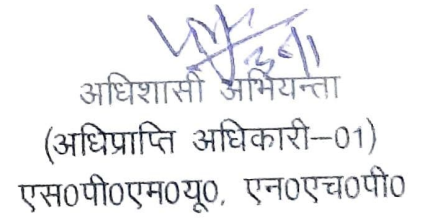 अधिशासी अभियन्ता
(अधिप्राप्ति अधिकारी–01)
एस0पी0एम0यू0, एन0एच0पी0